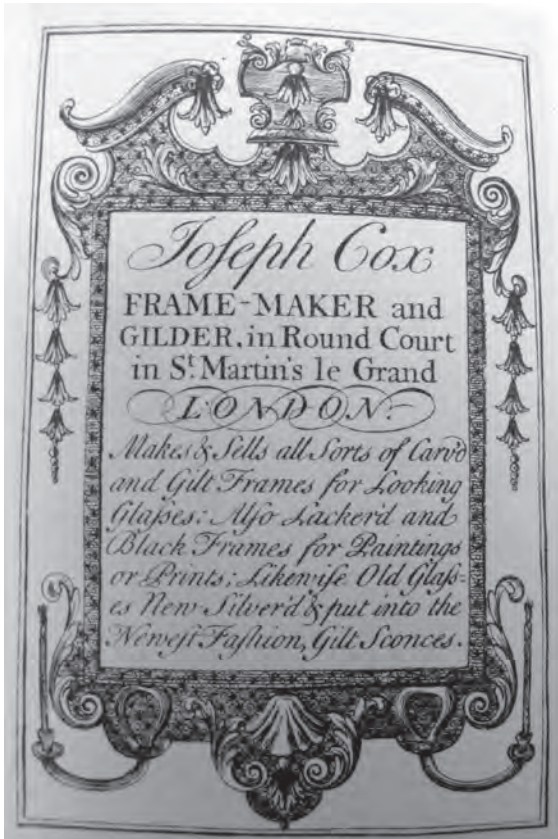 Joſeph Cox
FRAME-MAKER and
GILDER, in Round Court
in St. Martin's le Grand
LONDON.
Makes & Sells all Sorts of Carv'd
and Gilt Frames for Looking
Glaſses: Alſo Lacker'd and
Black Frames for Paintings
or Prints: Likewiſe Old Glaſs=
es New Silver'd & put into the
Neweſt Faſhion, Gilt Sconces.